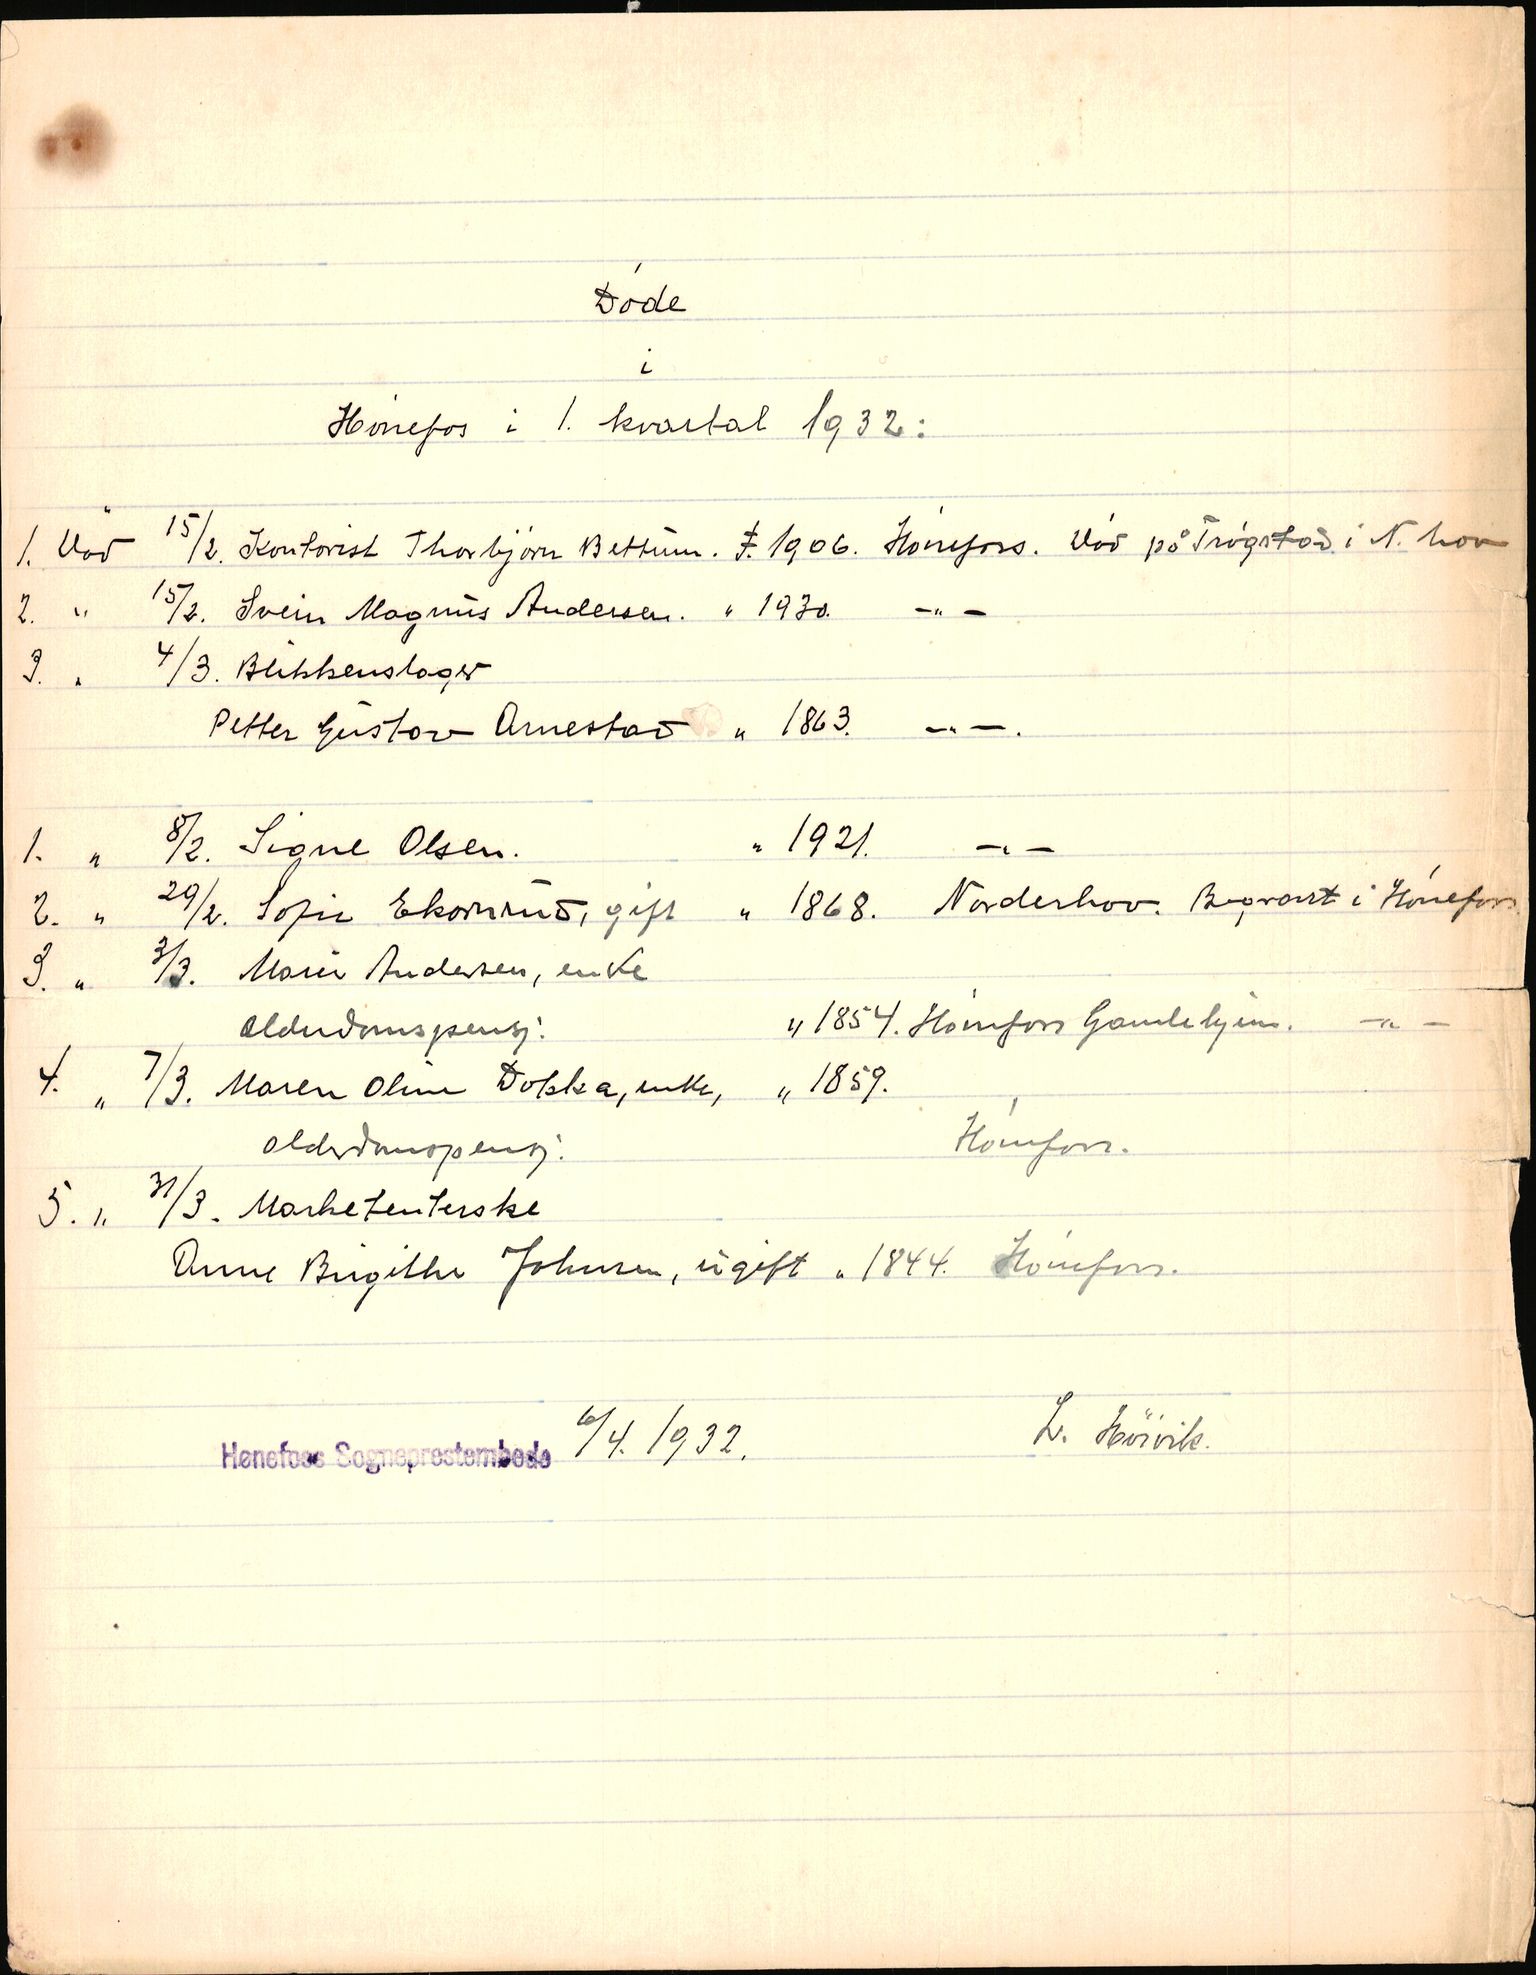 Døde
i
Hønefos i 1. kvartal 1932:
1. Død 15/2. Kontorist Thorbjørn Bettum. f. 1906. Hønefoss. Død på Trøgstad i N. hov
2. " 15/2. Svein Magnus Andersen. " 1930. —"—
3. " 4/3. Blikkenslager
Petter Gustav Arnestad " 1863. —"—.
1. " 8/2. Signe Olsen. " 1921. —"—
2. " 29/2. Sofie Ekornrud, gift " 1868. Norderhov. Begravet i Hønefoss
3. " 3/3. Marie Andersen, enke
alderdomspensj. " 1854. Hønefoss Gamlehjem. —"—
4. " 7/3. Maren Oline Dokka, enke, " 1859.
alderdomspensj. Hønefoss.
5. " 31/3. Marketenterske
Anne Birgithe Johnsen, ugift " 1844. Hønefoss.
Hønefoss Sogneprestembede 6/4. 1932. L. Høivik.